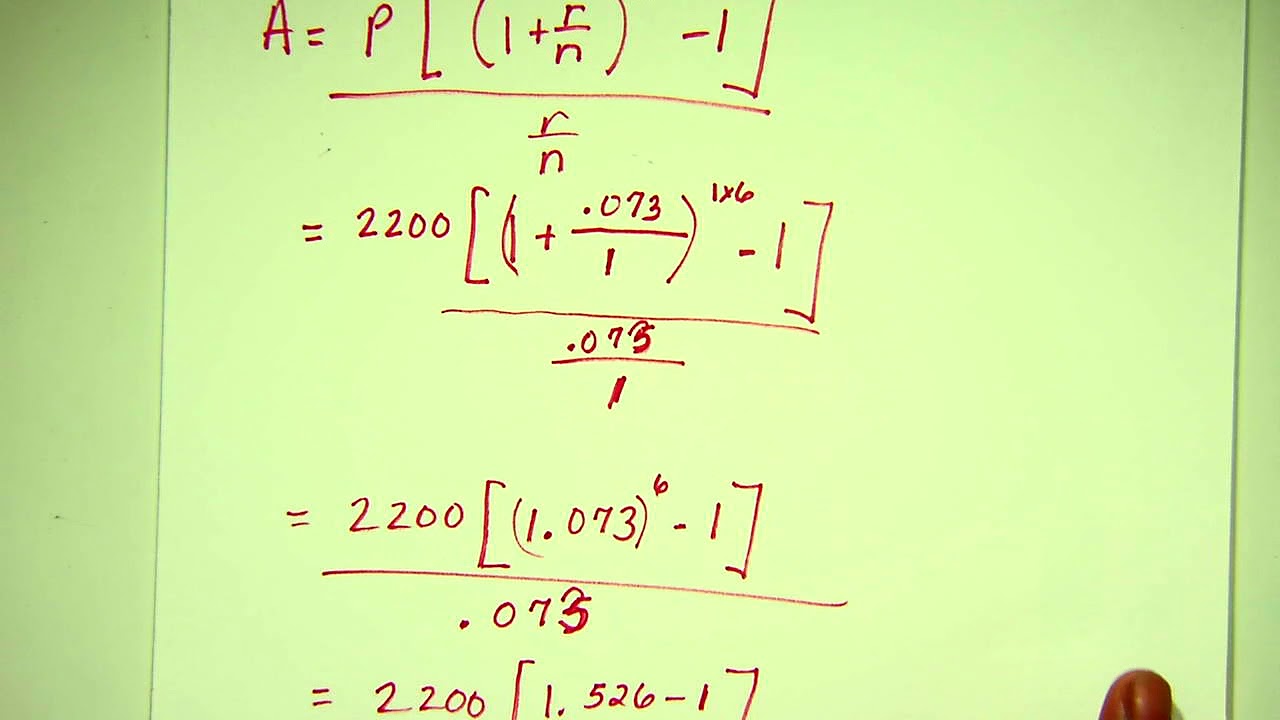 A = P [ (1 + r/n) - 1 ]
r/n
= 2200 [ (1 + .073/1)^1×6 - 1 ]
.073/1
= 2200 [ (1.073)^6 - 1 ]
.073
= 2200 [ 1.526 - 1 ]